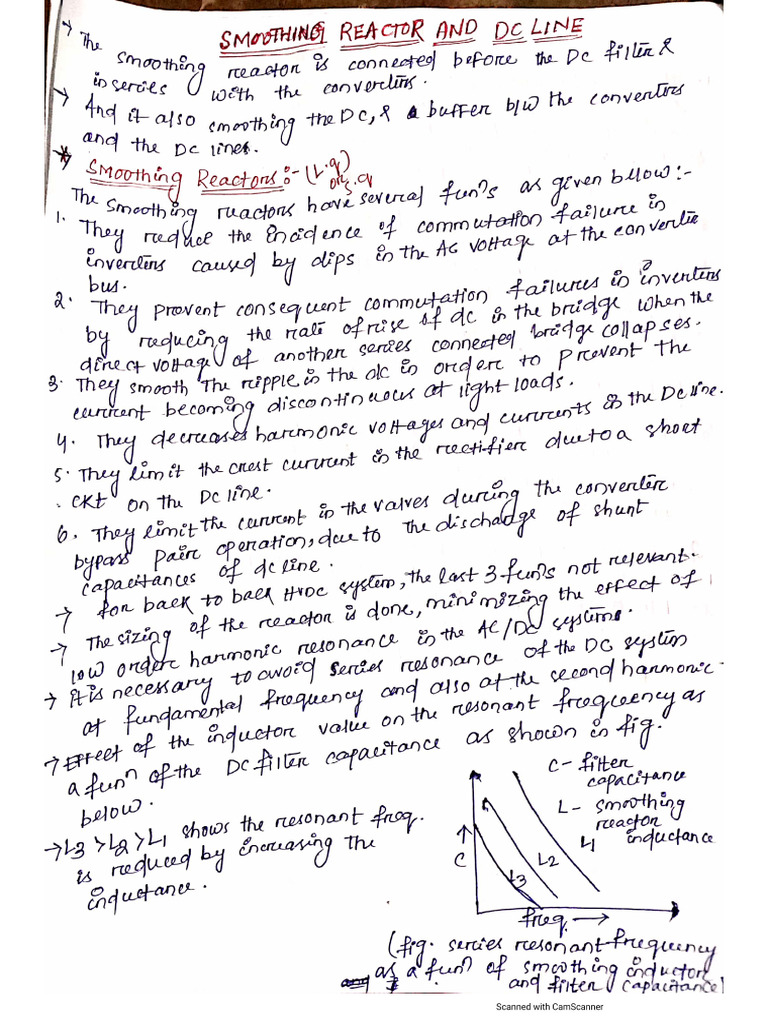 SMOOTHING REACTOR AND DC LINE
→ The smoothing reactor is connected before the DC filter &
in series with the converters.
→ And it also smoothing the DC, & a buffer b/w the converters
and the DC lines.
Smoothing Reactors:- (L.q)
or S.q
The smoothing reactors have several funⁿs as given bellow:-
1. They reduce the incidence of commutation failure in
inverters caused by dips in the AC voltage at the converter
bus.
2. They prevent consequent commutation failures in inverters
by reducing the rate of rise of dc in the bridge when the
direct voltage of another series connected bridge collapses.
3. They smooth the ripple in the dc in order to prevent the
current becoming discontinuous at light loads.
4. They decreases harmonic voltages and currents in the DC line.
5. They limit the crest current in the rectifier due to a short
ckt on the DC line.
6. They limit the current in the valves during the converter
bypass pair operation, due to the discharge of shunt
capacitances of dc line.
→ for back to back HVDC system, the last 3 funⁿs not relevant.
→ The sizing of the reactor is done, minimizing the effect of
low order harmonic resonance in the AC/DC systems.
→ it is necessary to avoid series resonance of the DC system
at fundamental frequency and also at the second harmonic.
→ Effect of the inductor value on the resonant frequency as
a funⁿ of the DC filter capacitance as shown in fig.
below.
→ L3 > L2 > L1 shows the resonant freq.
is reduced by increasing the
inductance.
C - filter
capacitance
L - smoothing
reactor
inductance
C
L3
L2
L1
freq. →
(fig. series resonant frequency
as a funⁿ of smoothing inductors
and filter capacitance)
Scanned with CamScanner